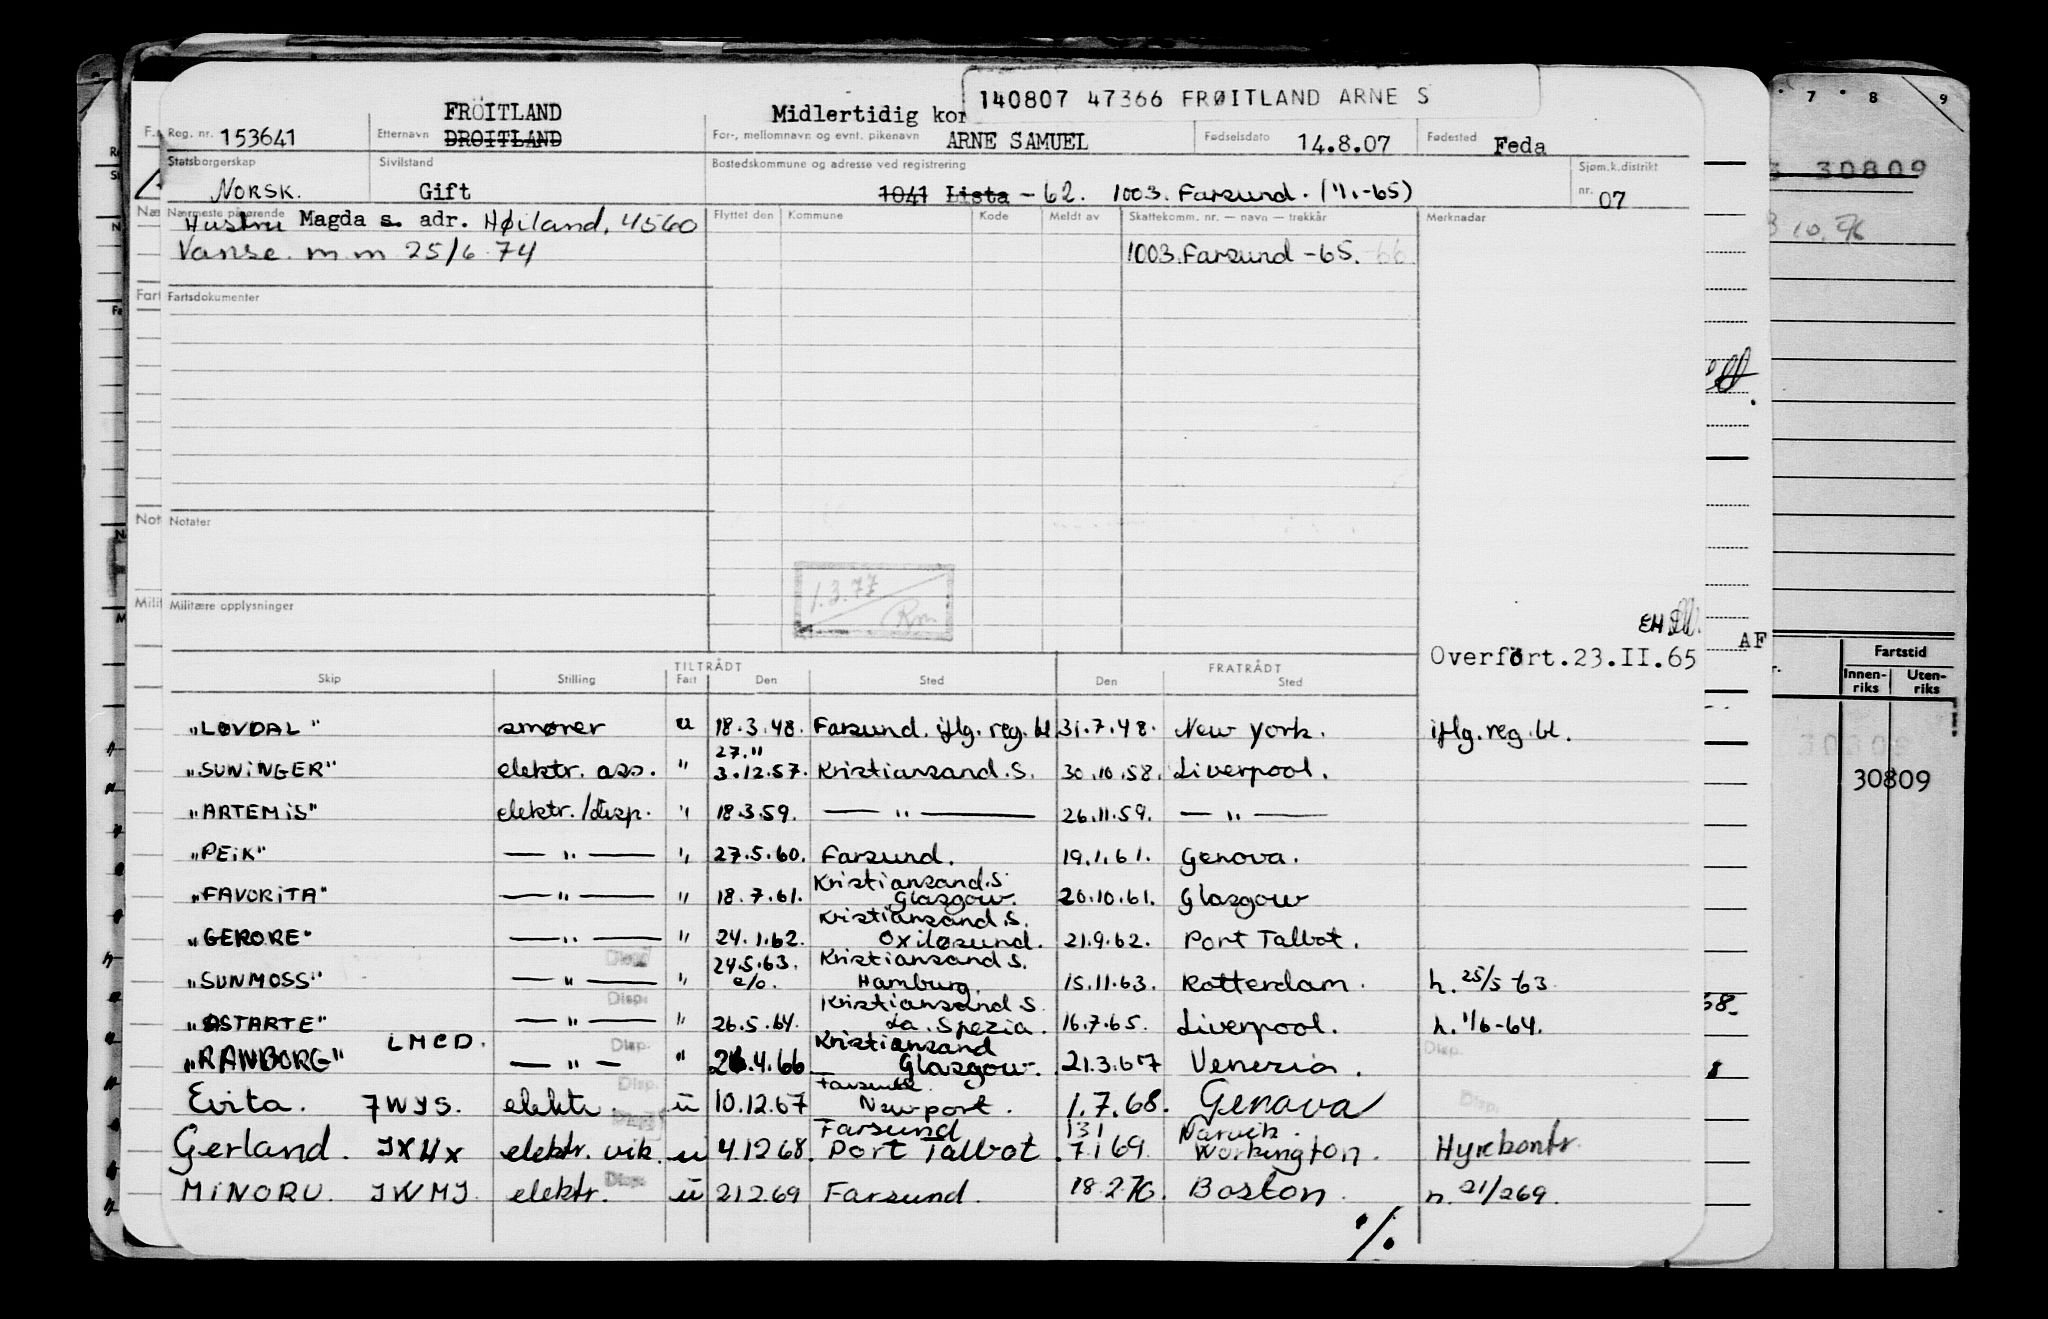 140807 47366 FRØITLAND ARNE S
FRÖITLAND
Midlertidig kor
Reg. nr. 153641 Etternavn DROITLAND For-, mellomnavn og evnt. pikenavn ARNE SAMUEL Fødselsdato 14.8.07 Fødested Feda
Statsborgerskap Sivilstand Bostedskommune og adresse ved registrering Sjøm.k.distrikt
NORSK. Gift 1041 Lista - 62. 1003. Farsund. (1/1-65) nr. 07
Nærmeste pårørende Flyttet den Kommune Kode Meldt av Skattekomm. nr. — navn — trekkår Merknader
Hustru Magda s. adr. Høiland, 4560
Vanse. m m 25/6 74 1003. Farsund -65. -66
Fartsdokumenter
Notater
1.3.77
Rm
Militære opplysninger
EH
Overfört.23.II.65
AF
TILTRÅDT FRATRÅDT
Skip Stilling Fart Den Sted Den Sted
"LØVDAL" smører u 18.3.48. Farsund. iflg. reg. bl 31.7.48. New York. iflg. reg. bl.
27."
"SUNINGER" elektr. ass. " 3.12.57. Kristiansand. S. 30.10.58. Liverpool.
"ARTEMIS" elektr./disp. " 18.3.59. — " — 26.11.59. — " —
"PEIK" — " — " 27.5.60. Farsund. 19.1.61. Genova.
Kristiansand. S.
"FAVORITA" — " — " 18.7.61. Glasgow. 20.10.61. Glasgow
Kristiansand. S.
"GERORE" — " — " 24.1.62. Oxiløsund. 21.9.62. Port Talbot.
Disp. 24.5.63. Kristiansand S.
"SUNMOSS" — " — " e/o. Hamburg. 15.11.63. Rotterdam. h. 25/5-63
Disp. Kristiansand S.
"ASTARTE" — " — " 26.5.64. La Spezia. 16.7.65. Liverpool. h. 1/6-64.
Disp. Kristiansand Disp.
"RANBORG" LMCD. — " — " 26.4.66 Glasgow. 21.3.67 Venezia.
Disp. Farsund. Disp.
Evita. 7WYS. elektr ü 10.12.67 Newport. 1.7.68. Genova
Farsund 131 Narvik.
Gerland. JXHX elektr. vik. u 4.12 68. Port Talbot. 7 1 69 Workington. Hyrekontr.
Disp.
MINORU. JWMJ elektr. ü 21 2 69 Farsund. 18 2 70. Boston. n. 21/2 69.
%
7 8 9
30809
Fartstid
Innen-riks Uten-riks
30809
30809